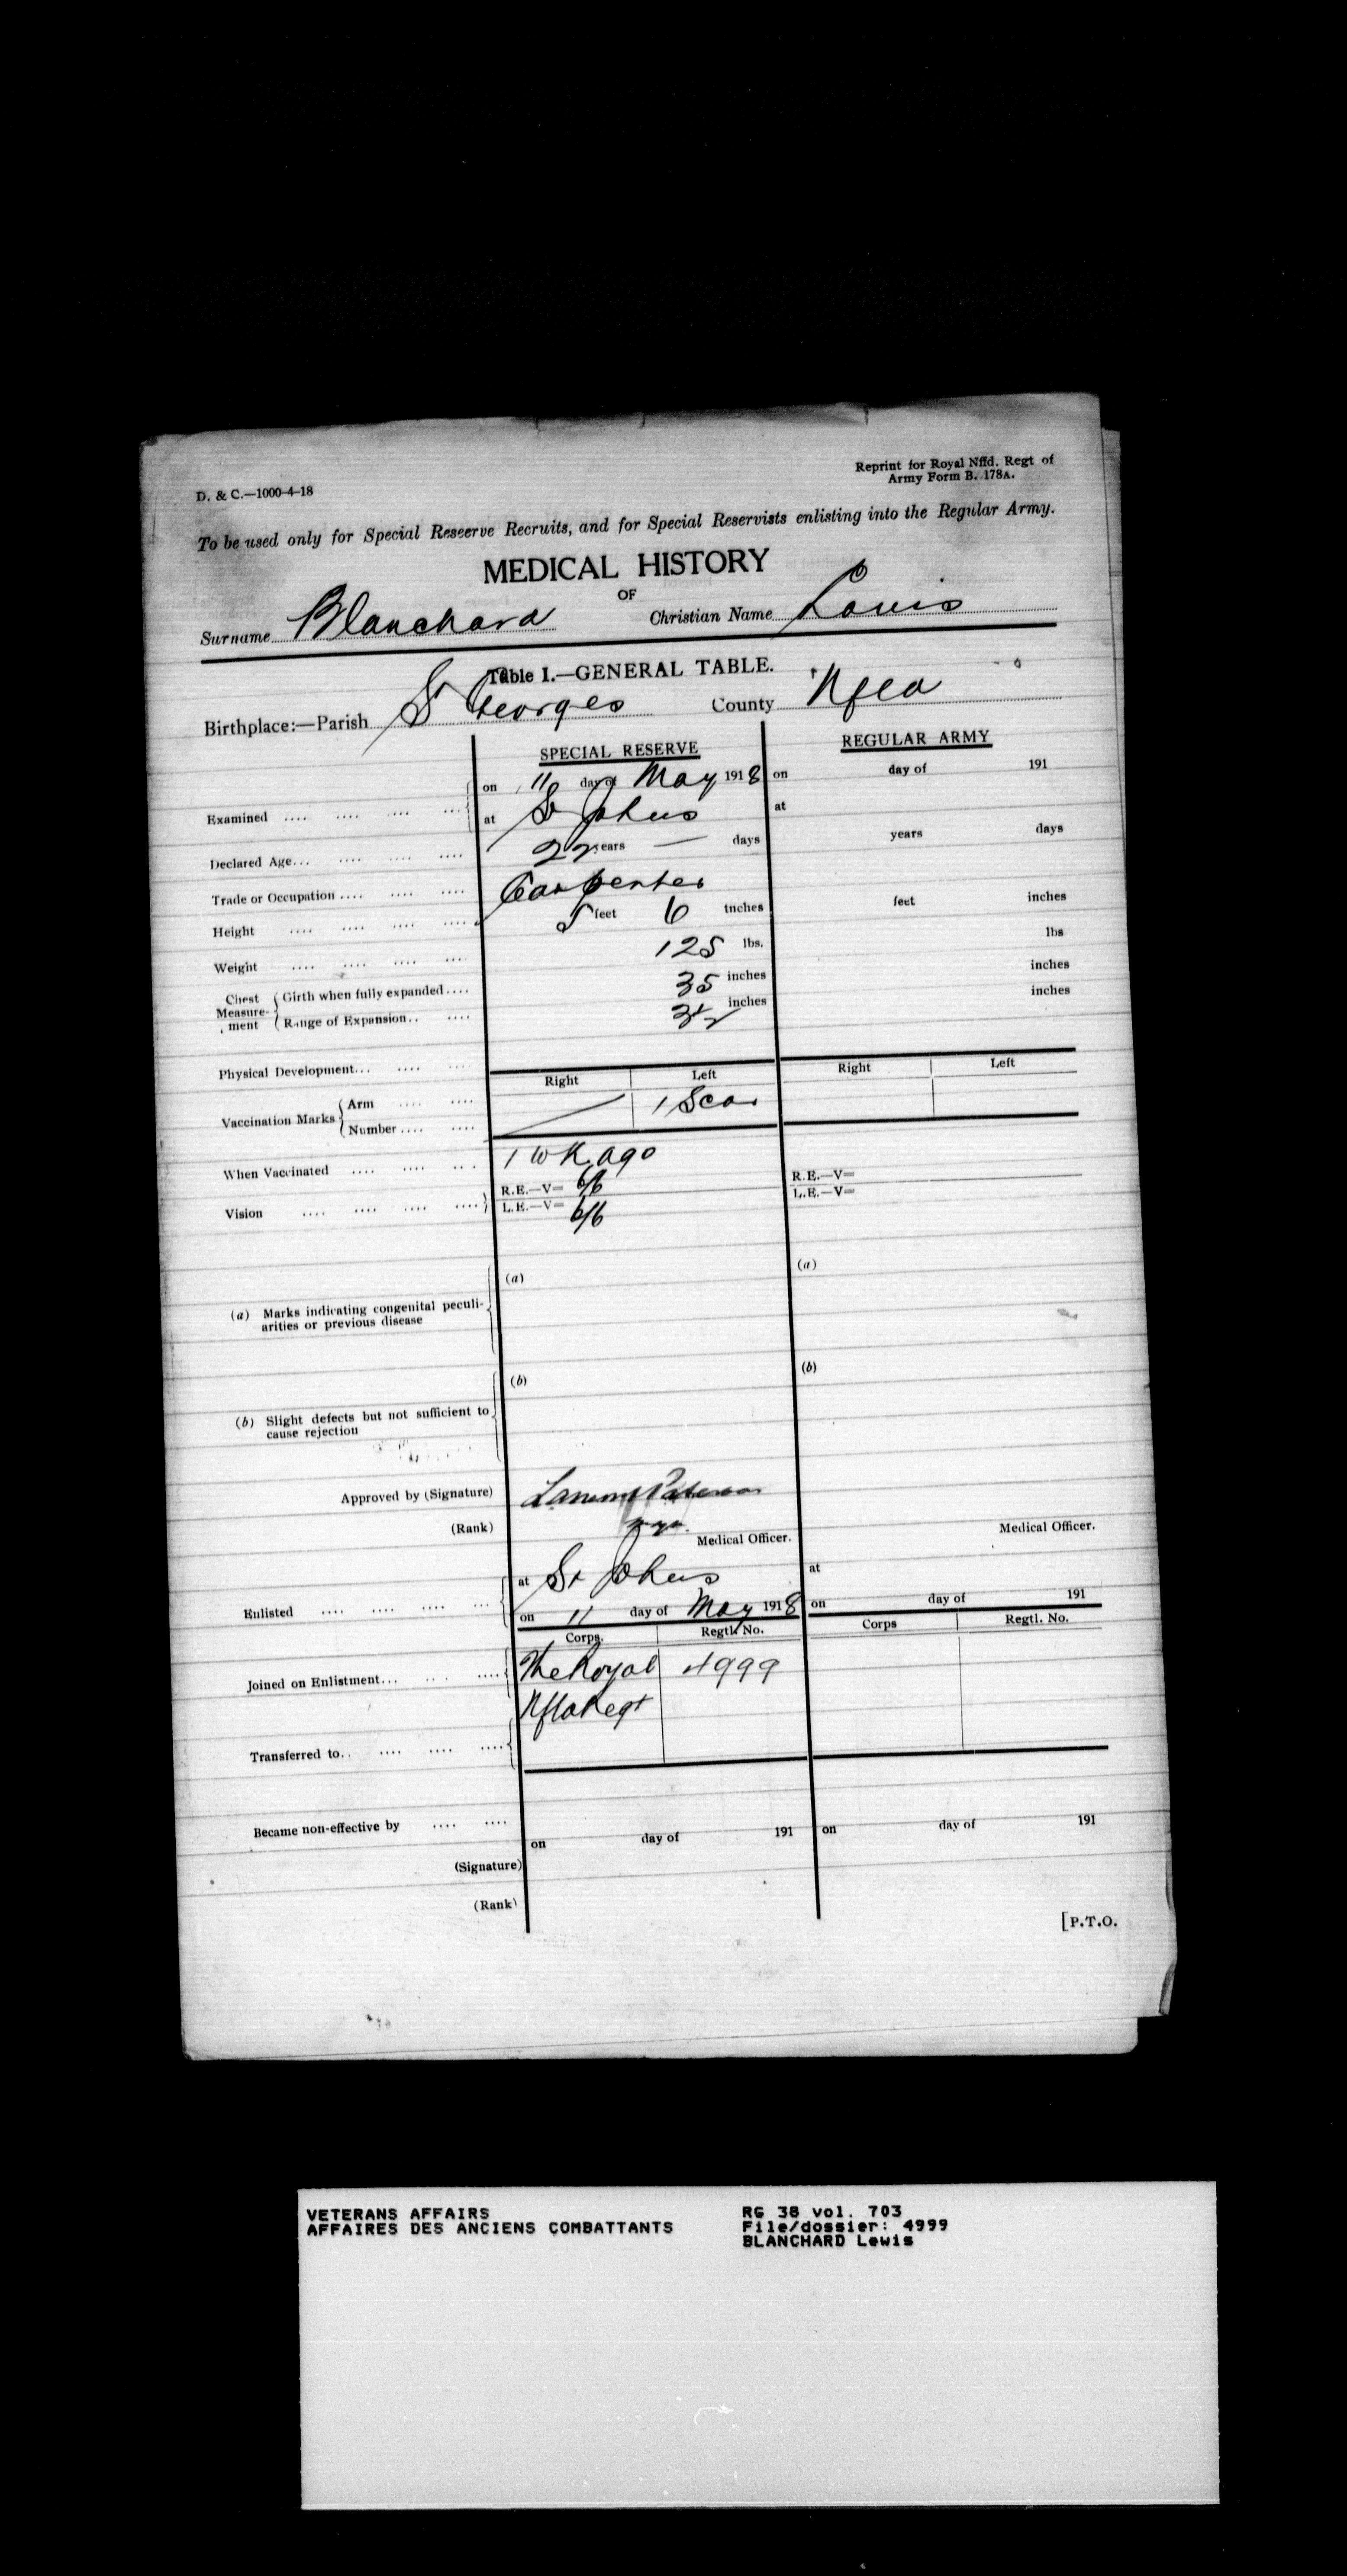 D. & C.—1000-4-18
Reprint for Royal Nffd. Regt of
Army Form B. 178A.
To be used only for Special Reseerve Recruits, and for Special Reservists enlisting into the Regular Army.
MEDICAL HISTORY
OF
Surname Blanchard Christian Name Louis
Table I.—GENERAL TABLE.
Birthplace:—Parish St Georges County Nfld
SPECIAL RESERVE REGULAR ARMY
Examined on 11 day of May 1918 on day of 191
at St Johns at
Declared Age 22 years — days years days
Trade or Occupation Carpenter
Height 5 feet 6 inches feet inches
Weight 125 lbs. lbs
Chest Measurement Girth when fully expanded 35 inches inches
Range of Expansion inches inches
Physical Development
Right Left Right Left
Vaccination Marks Arm 1 Scar
Number
When Vaccinated 1 wk ago
Vision R.E.—V= 6/6 R.E.—V=
L.E.—V= 6/6 L.E.—V=
(a) Marks indicating congenital peculi-
arities or previous disease (a) (a)
(b) Slight defects but not sufficient to
cause rejection (b) (b)
Approved by (Signature) Paterson
(Rank) Medical Officer. Medical Officer.
Enlisted at St Johns at
on 11 day of May 1918 on day of 191
Corps. Regtl. No. Corps Regtl. No.
Joined on Enlistment The Royal 4999
Nfld Regt
Transferred to
Became non-effective by
on day of 191 on day of 191
(Signature)
(Rank)
[P.T.O.
VETERANS AFFAIRS RG 38 vol. 703
AFFAIRES DES ANCIENS COMBATTANTS File/dossier: 4999
BLANCHARD Lewis